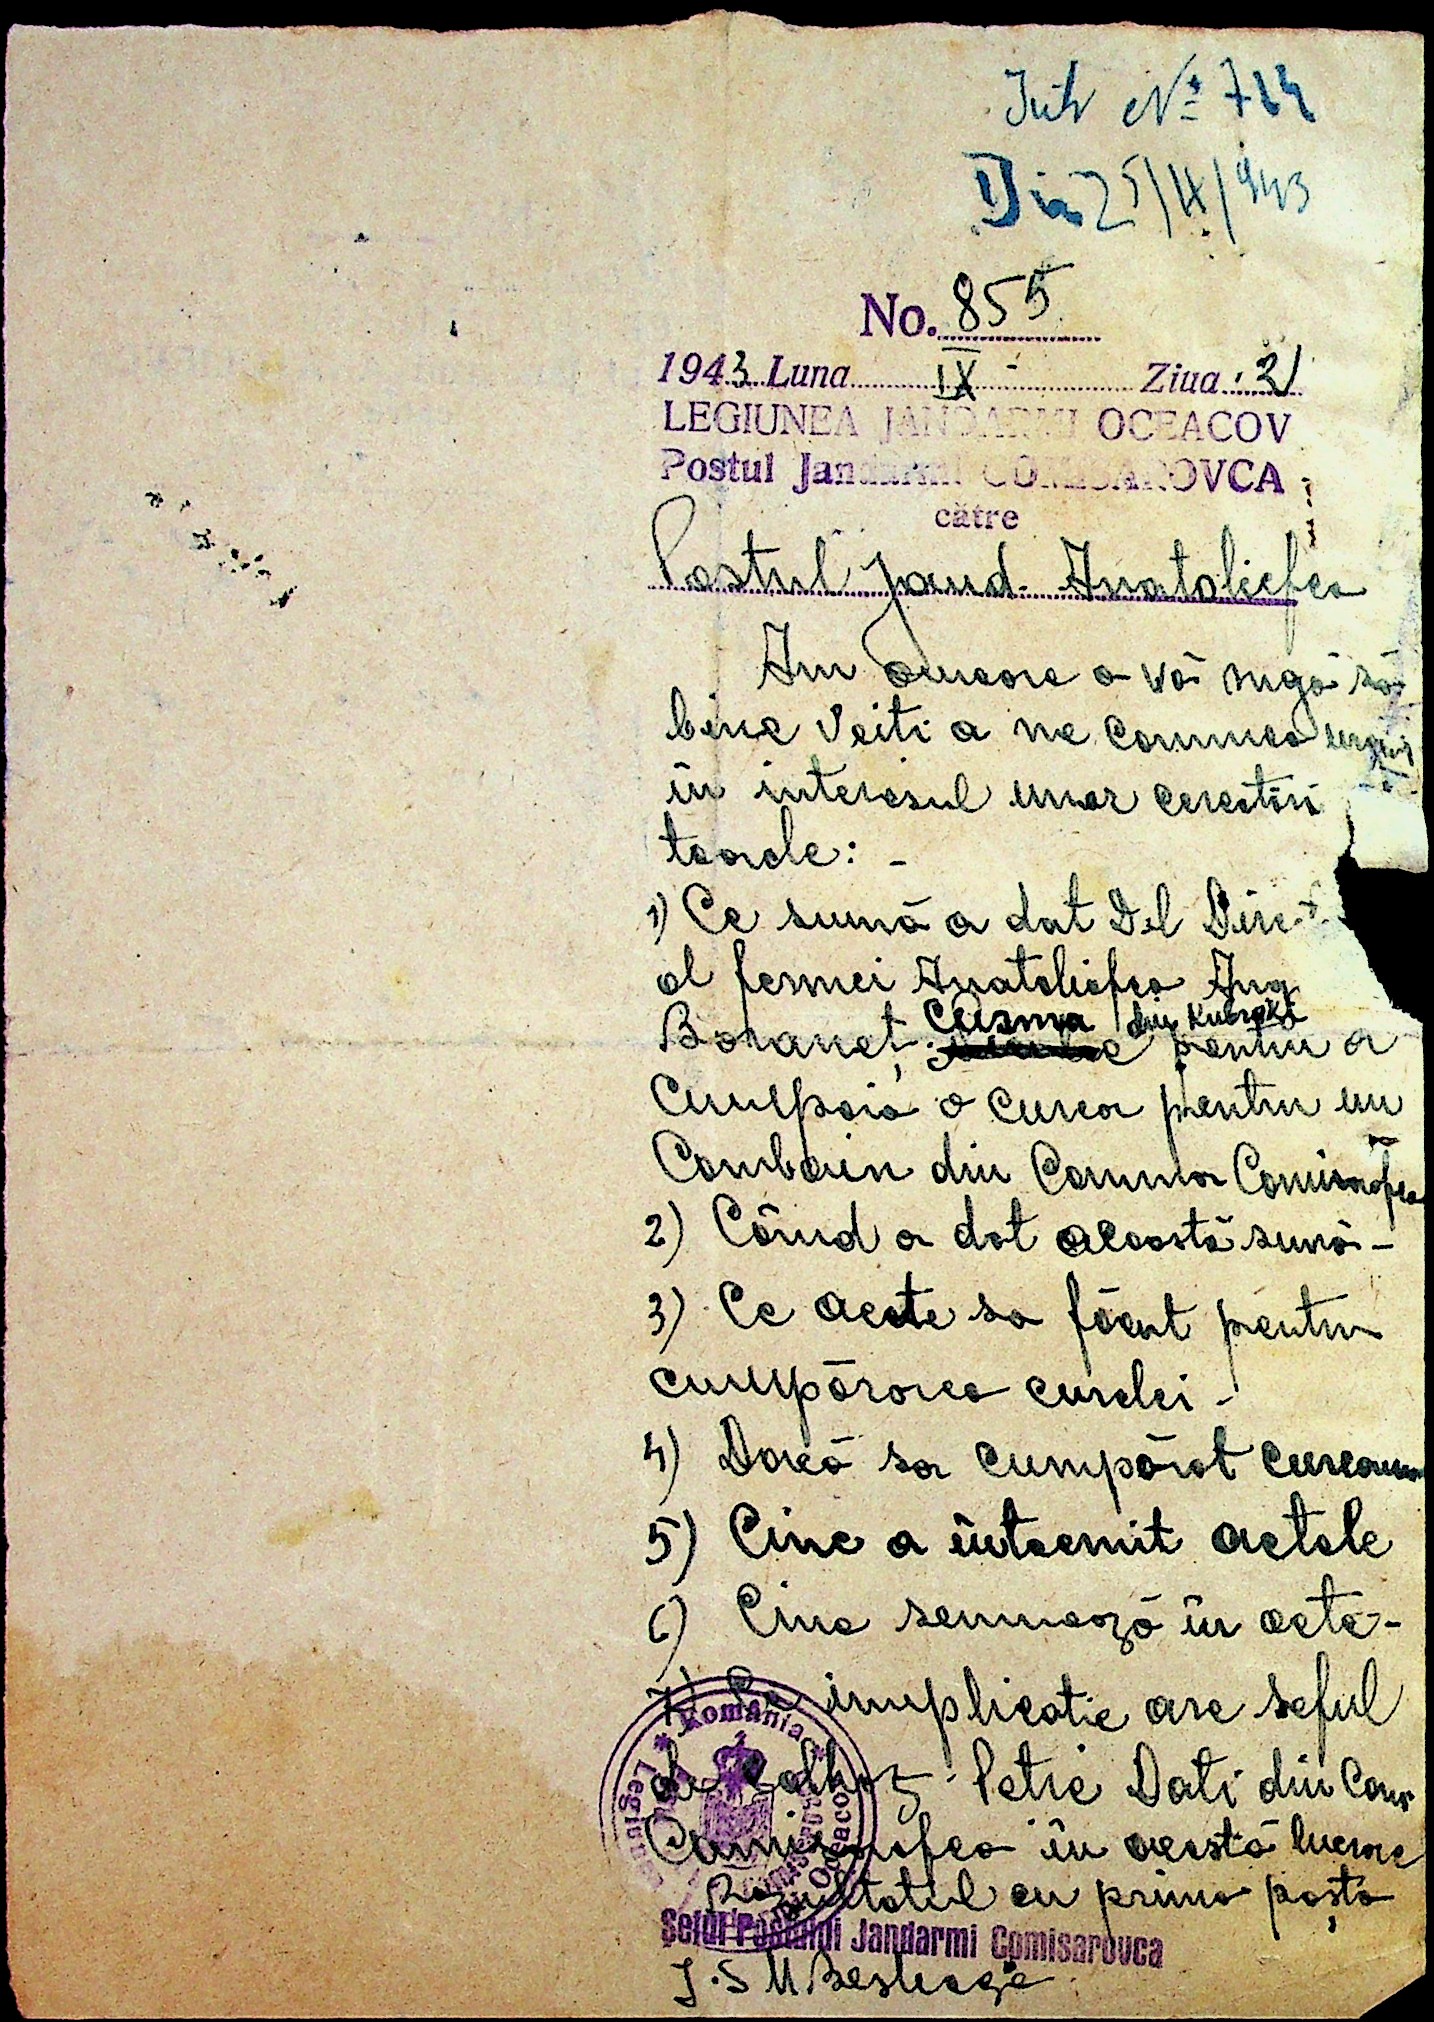 Intr № 714
Din 25/IX/943
No. 855
1943 Luna IX Ziua 21
LEGIUNEA JANDARMI OCEACOV
Postul Jandarmi COMISAROVCA
către
Postul Jand. Anatoliefca
Am onoare a vă ruga să
bine Voiti a ne comunica
în interesul unor cercetări
toarele: -
1) Ce sumă a dat Dl Direct
al fermei Anatoliefca Ing
Cuzma din Kubraki
Boranet, pentru a
cumpara o curea pentru un
Combain din Comuna Comisarofca
2) Când a dat această sumă -
3) Ce acte sa făcut pentru
cumpărarea curelei -
4) Dacă sa cumpărat cureaua
5) Cine a întocmit actele
6) Cine semnează în acte -
7) Ce implicatie are seful
de colhoz Petre Dati din Com
Comisarofca în acestă lucrare
Rezultatul cu prima poșta
România
Legiunea Jandarmi Oceacov
Șeful Postului Jandarmi Comisarovca